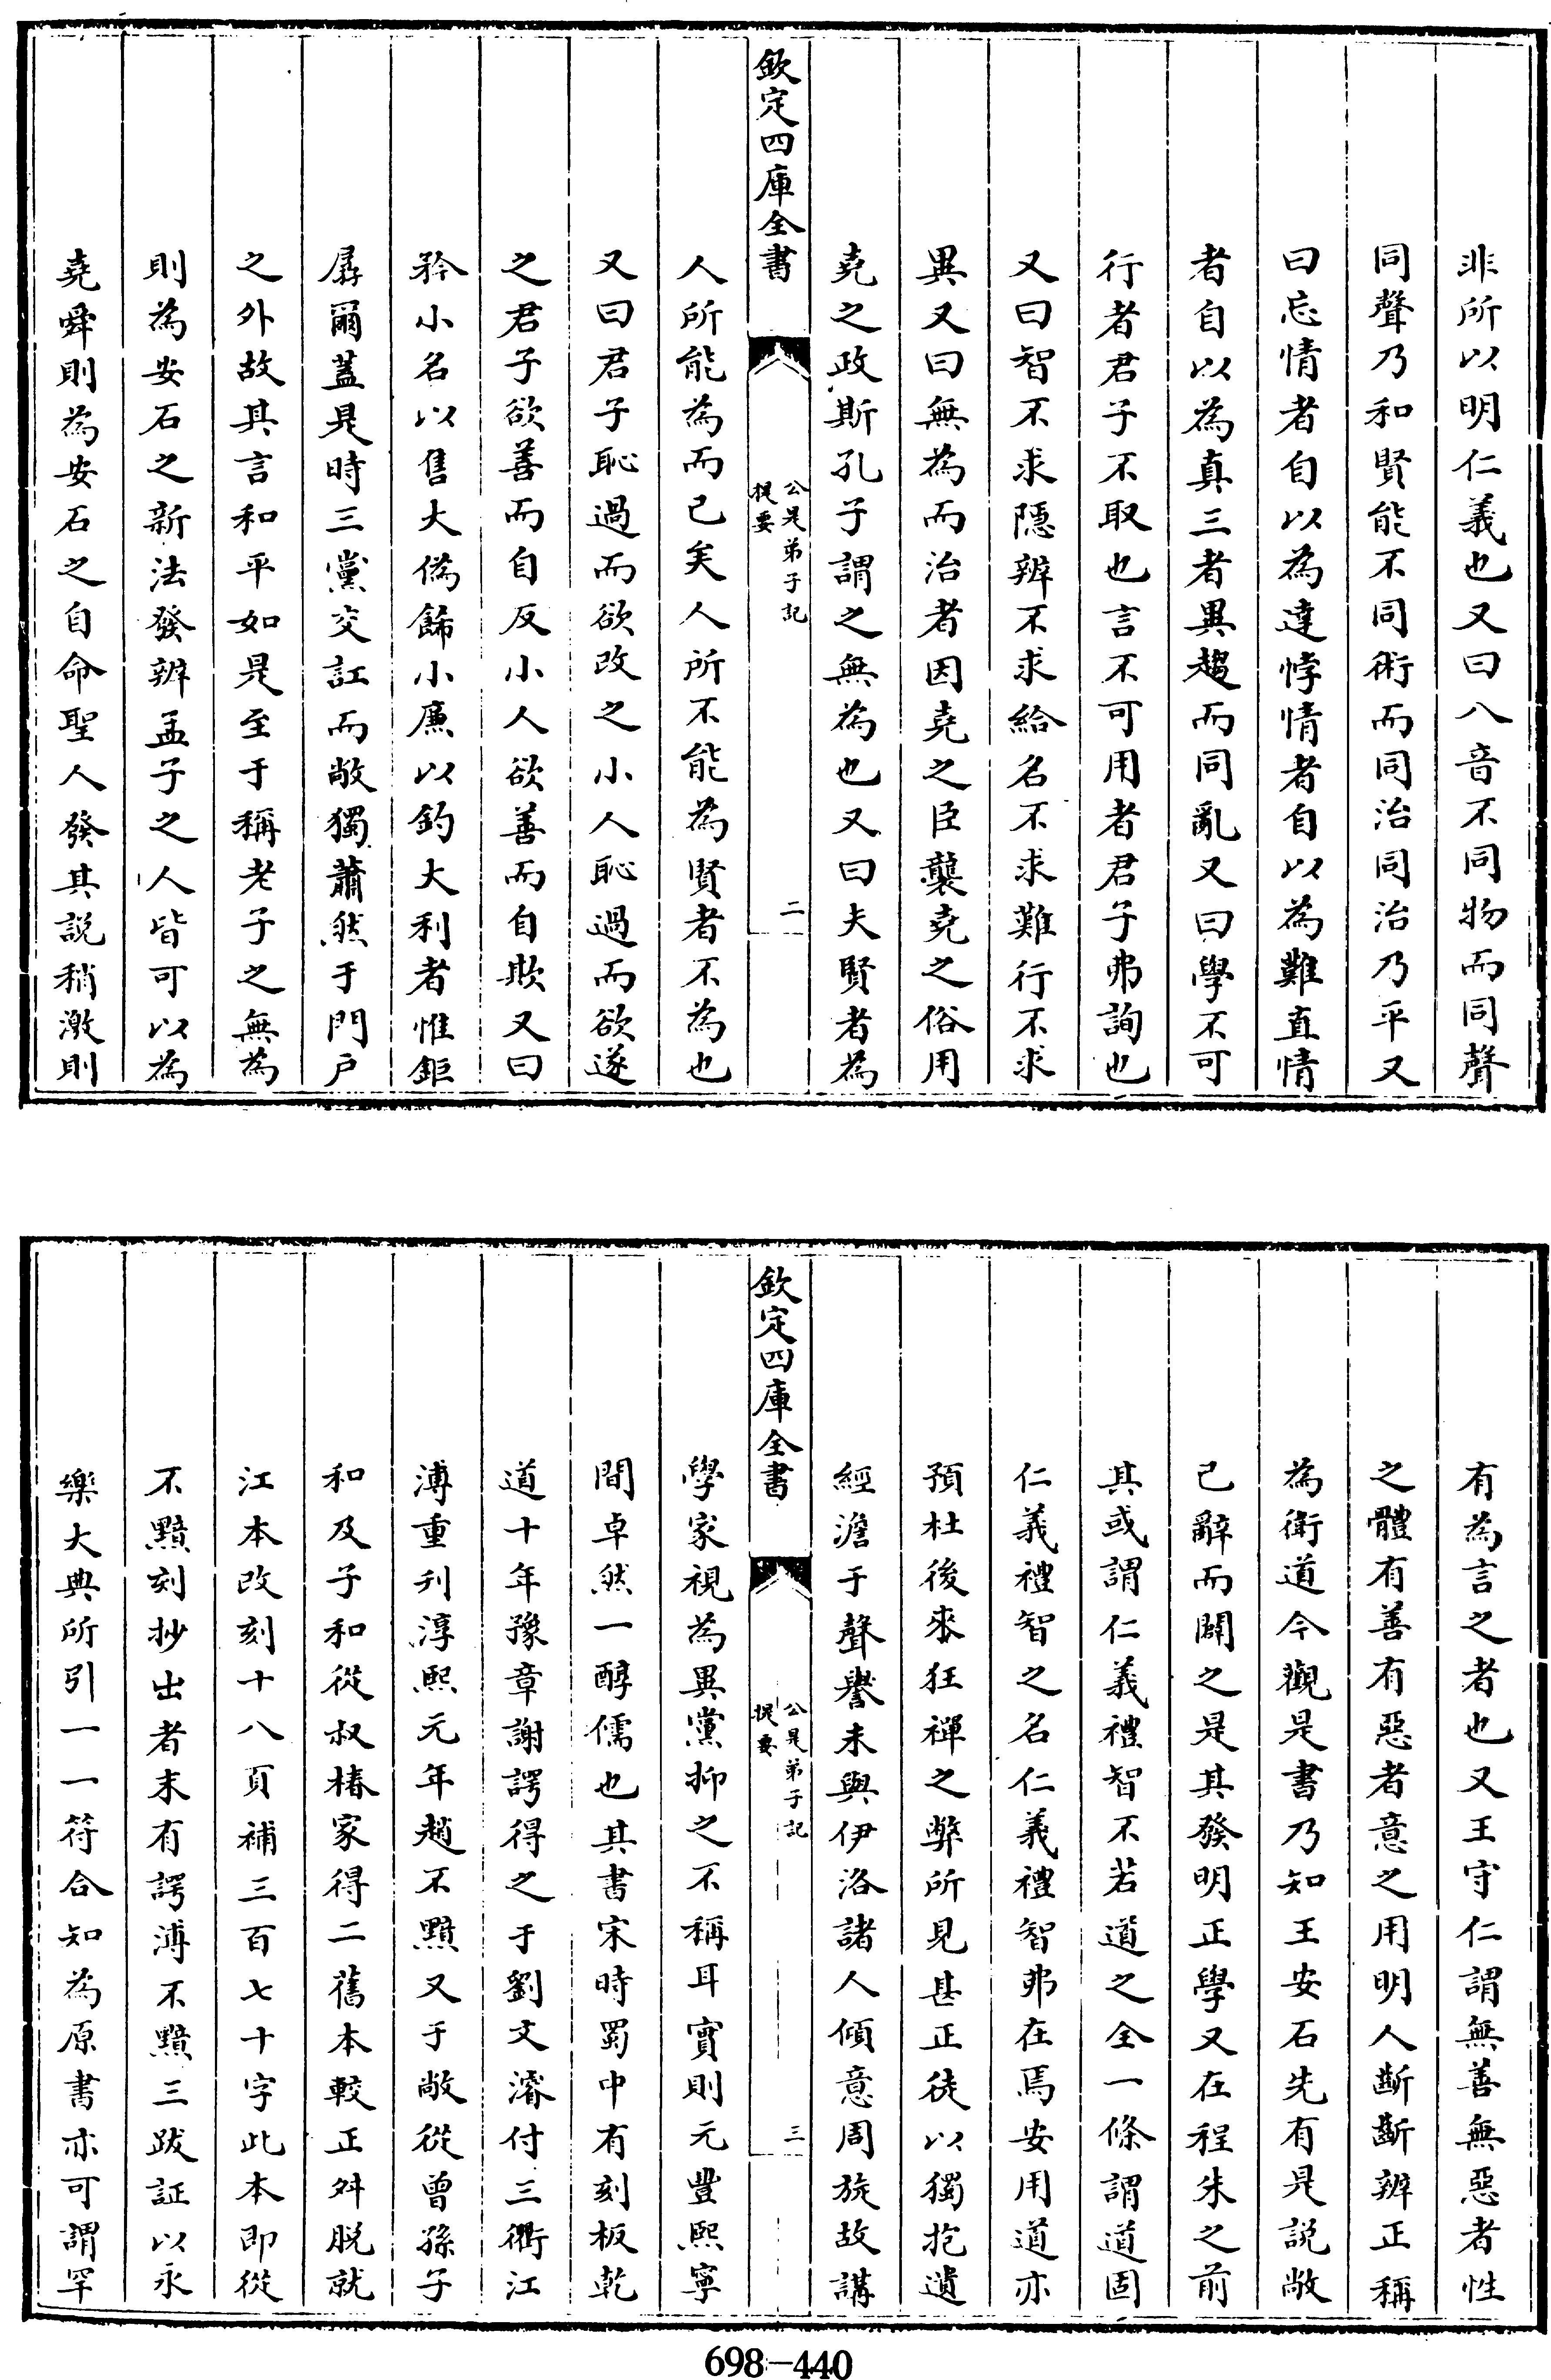 非所以明仁義也又曰八音不同物而同聲
同聲乃和賢能不同術而同治同治乃平又
曰忘情者自以為達悖情者自以為難直情
者自以為真三者異趨而同亂又曰學不可
行者君子不取也言不可用者君子弗詢也
又曰智不求隱辨不求給名不求難行不求
異又曰無為而治者因堯之臣襲堯之俗用
堯之政斯孔子謂之無為也又曰夫賢者為
欽定四庫全書
公是弟子記
提要
二
人所能為而已矣人所不能為賢者不為也
又曰君子恥過而欲改之小人恥過而欲遂
之君子欲善而自反小人欲善而自欺又曰
矜小名以售大偽飾小廉以釣大利者惟鉅
孱爾蓋是時三黨交訌而敞獨蕭然于門戶
之外故其言和平如是至于稱老子之無為
則為安石之新法發辨孟子之人皆可以為
堯舜則為安石之自命聖人發其說稍激則
有為言之者也又王守仁謂無善無惡者性
之體有善有惡者意之用明人齗齗辨正稱
為衛道今觀是書乃知王安石先有是說敞
已辭而闢之是其發明正學又在程朱之前
其或謂仁義禮智不若道之全一條謂道固
仁義禮智之名仁義禮智弗在焉安用道亦
預杜後來狂禪之弊所見甚正徒以獨抱遺
經澹于聲譽未與伊洛諸人傾意周旋故講
欽定四庫全書
公是弟子記
提要
三
學家視為異黨抑之不稱耳實則元豐熙寧
間卓然一醇儒也其書宋時蜀中有刻板乾
道十年豫章謝諤得之于劉文濬付三衢江
溥重刊淳熙元年趙不黯又于敞從曾孫子
和及子和從叔椿家得二舊本較正舛脫就
江本改刻十八頁補三百七十字此本即從
不黯刻抄出者末有諤溥不黯三跋証以永
樂大典所引一一符合知為原書亦可謂罕
698-440